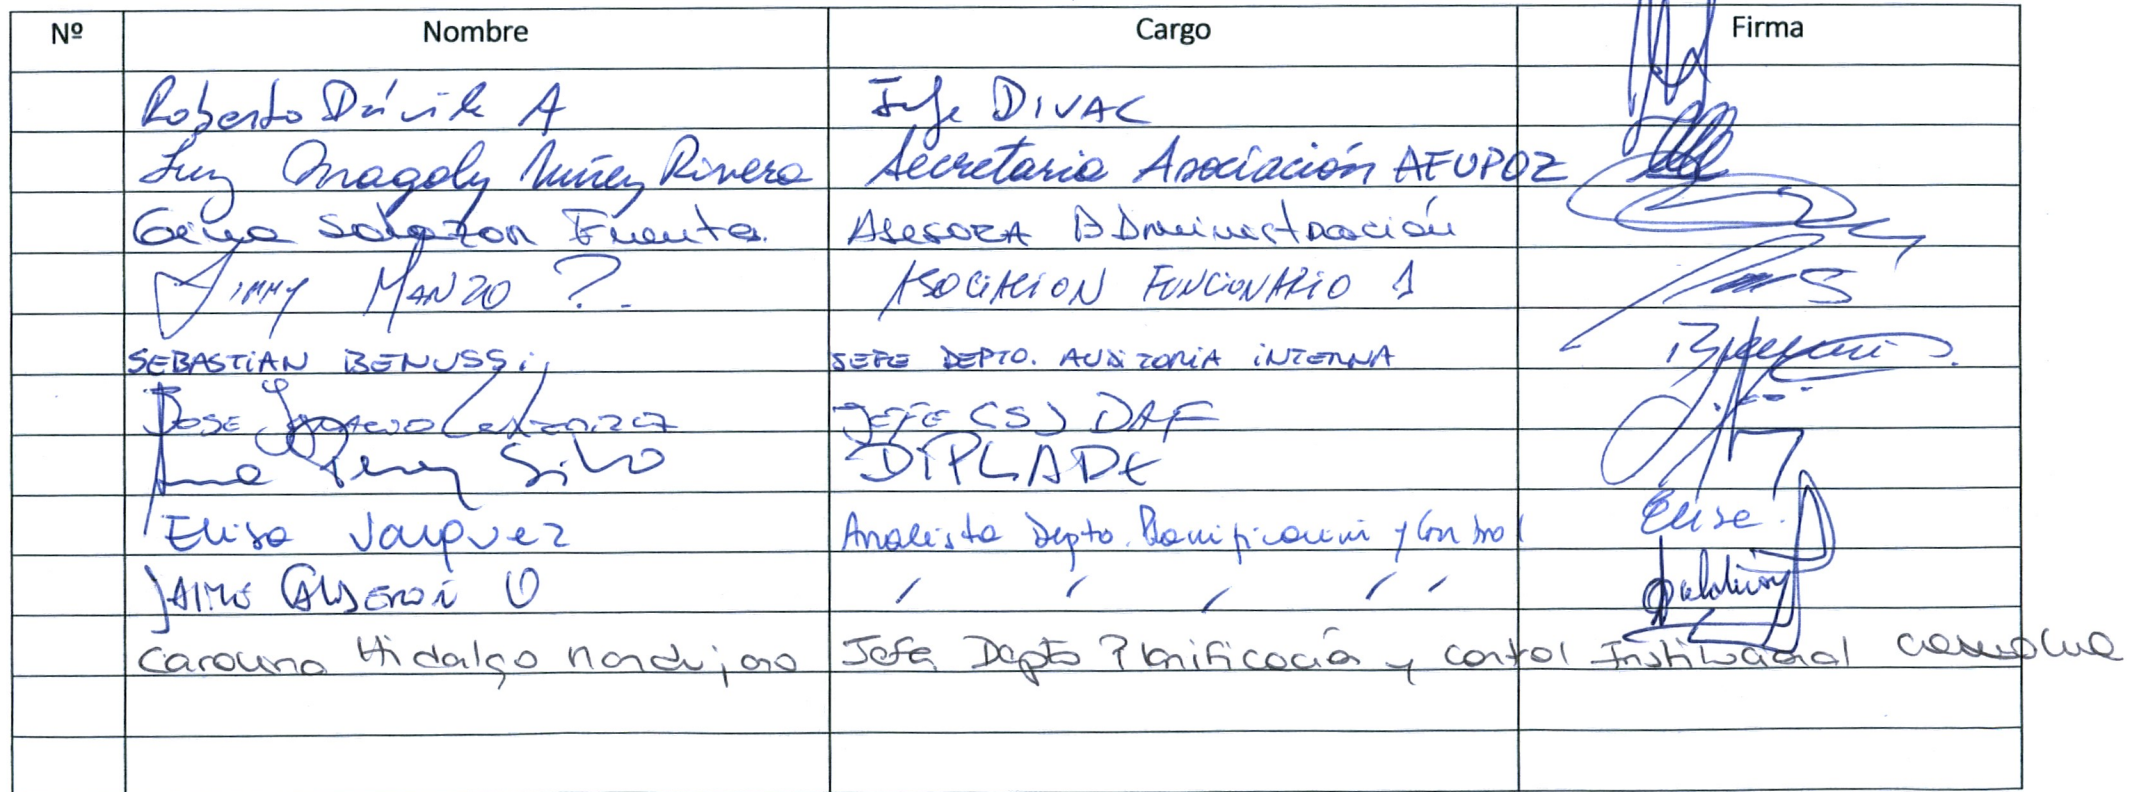 Nº Nombre Cargo Firma
Roberto Dávila A Jefe DIVAC
Luz Magaly Núñez Rivera Secretaria Asociación AFUPOZ
Geina Salazar Fuentes. Asesora Administración
Jimmy Manzo ?. Asociacion Funcionario 1
SEBASTIAN BENUSSi JEFE DEPTO. AUDITORIA INTERNA
Jose Ignacio JEFE (S) DAF
Ana Perez Silva DIPLADE
Elisa Vasquez Analista Depto. Planificacion y Control Elisa.
Jaime Calderón O " " " " "
Carolina Hidalgo Mandujano Jefa Depto Planificación y control Institucional